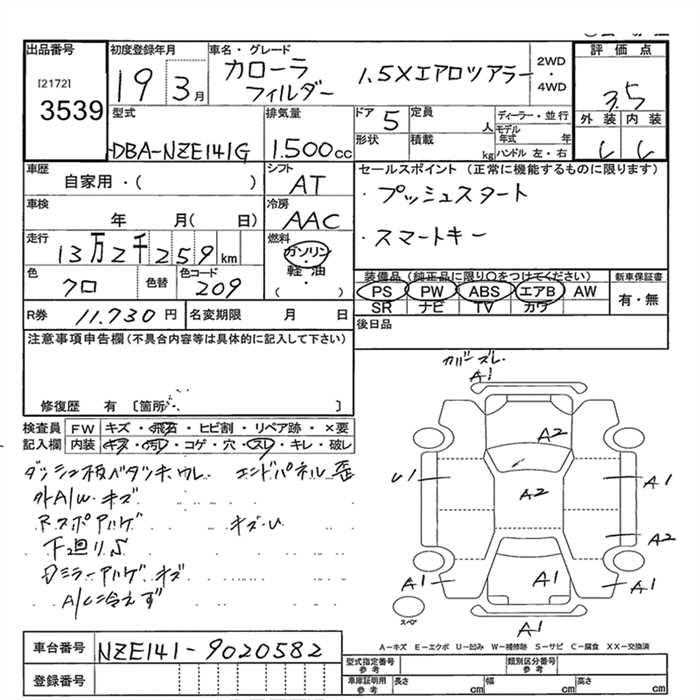 出品番号 初度登録年月 車名・グレード 評価点
[2172]
3539
19 3月
カローラ
フィルダー
1.5Xエアロツアラー
2WD
・
4WD
3.5
外装 内装
型式 排気量 ドア 5 定員 人 ディーラー・並行
モデル年式 年
DBA-NZE141G 1.500cc 形状 積載 kg ハンドル 左・右
車歴 シフト セールスポイント (正常に機能するものに限ります)
自家用・( ) AT ・プッシュスタート
車検 冷房
年 月( 日) AAC ・スマートキー
走行 燃料
13万2千259km ガソリン
・
軽油
( )
色 色替 色コード
クロ 209
装備品 (純正品に限り○をつけてください) 新車保証書
PS PW ABS エアB AW 有・無
SR ナビ TV カワ
R券 11.730円 名変期限 月 日 後日品
注意事項申告欄(不具合内容等は具体的に記入して下さい)
修復歴 有 [箇所 ]
検査員 FW キズ・飛石・ヒビ割・リペア跡・×要
記入欄 内装 キズ・汚レ・コゲ・穴・スレ・キレ・破レ
エンドパネル歪
外A/W キズ
Rスポアルゲ キズ・U
下廻りS
DミラーアルゲキズA/C冷えず
カバーズレ
A1
A2
U1 A2 A1
A2
A1 A1 A1
A1
スペア
A-キズ E-エクボ U-凹み W-補修跡 S-サビ C-腐食 XX-交換済
車台番号 NZE141-9020582
登録番号
型式指定番号 参考 類別区分番号 参考
車庫証明用 参考 長さ cm 幅 cm 高さ cm